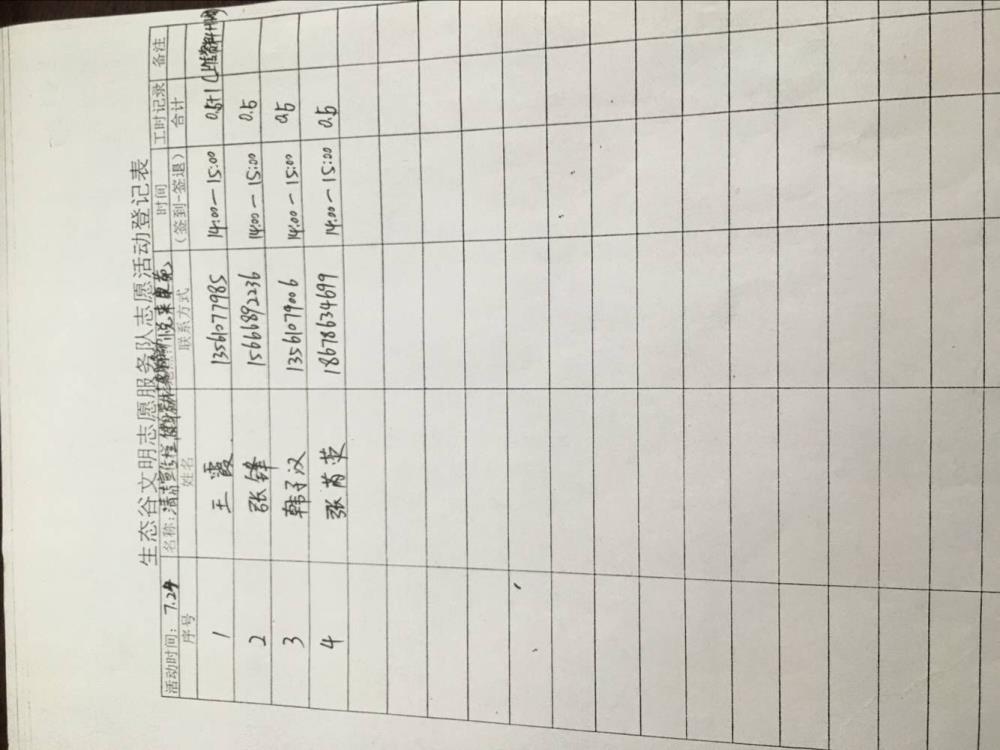 生态谷文明志愿服务队志愿活动登记表
活动时间：7.24 名称：清洁宣传栏
序号 姓名 联系方式 时间（签到-签退） 工时记录合计 备注
1 王霞 13561077985 14:00—15:00 0.5+1
2 张锋 15666892236 14:00—15:00 0.5
3 韩子汉 13561079006 14:00—15:00 0.5
4 张芮荧 18678634699 14:00—15:00 0.5